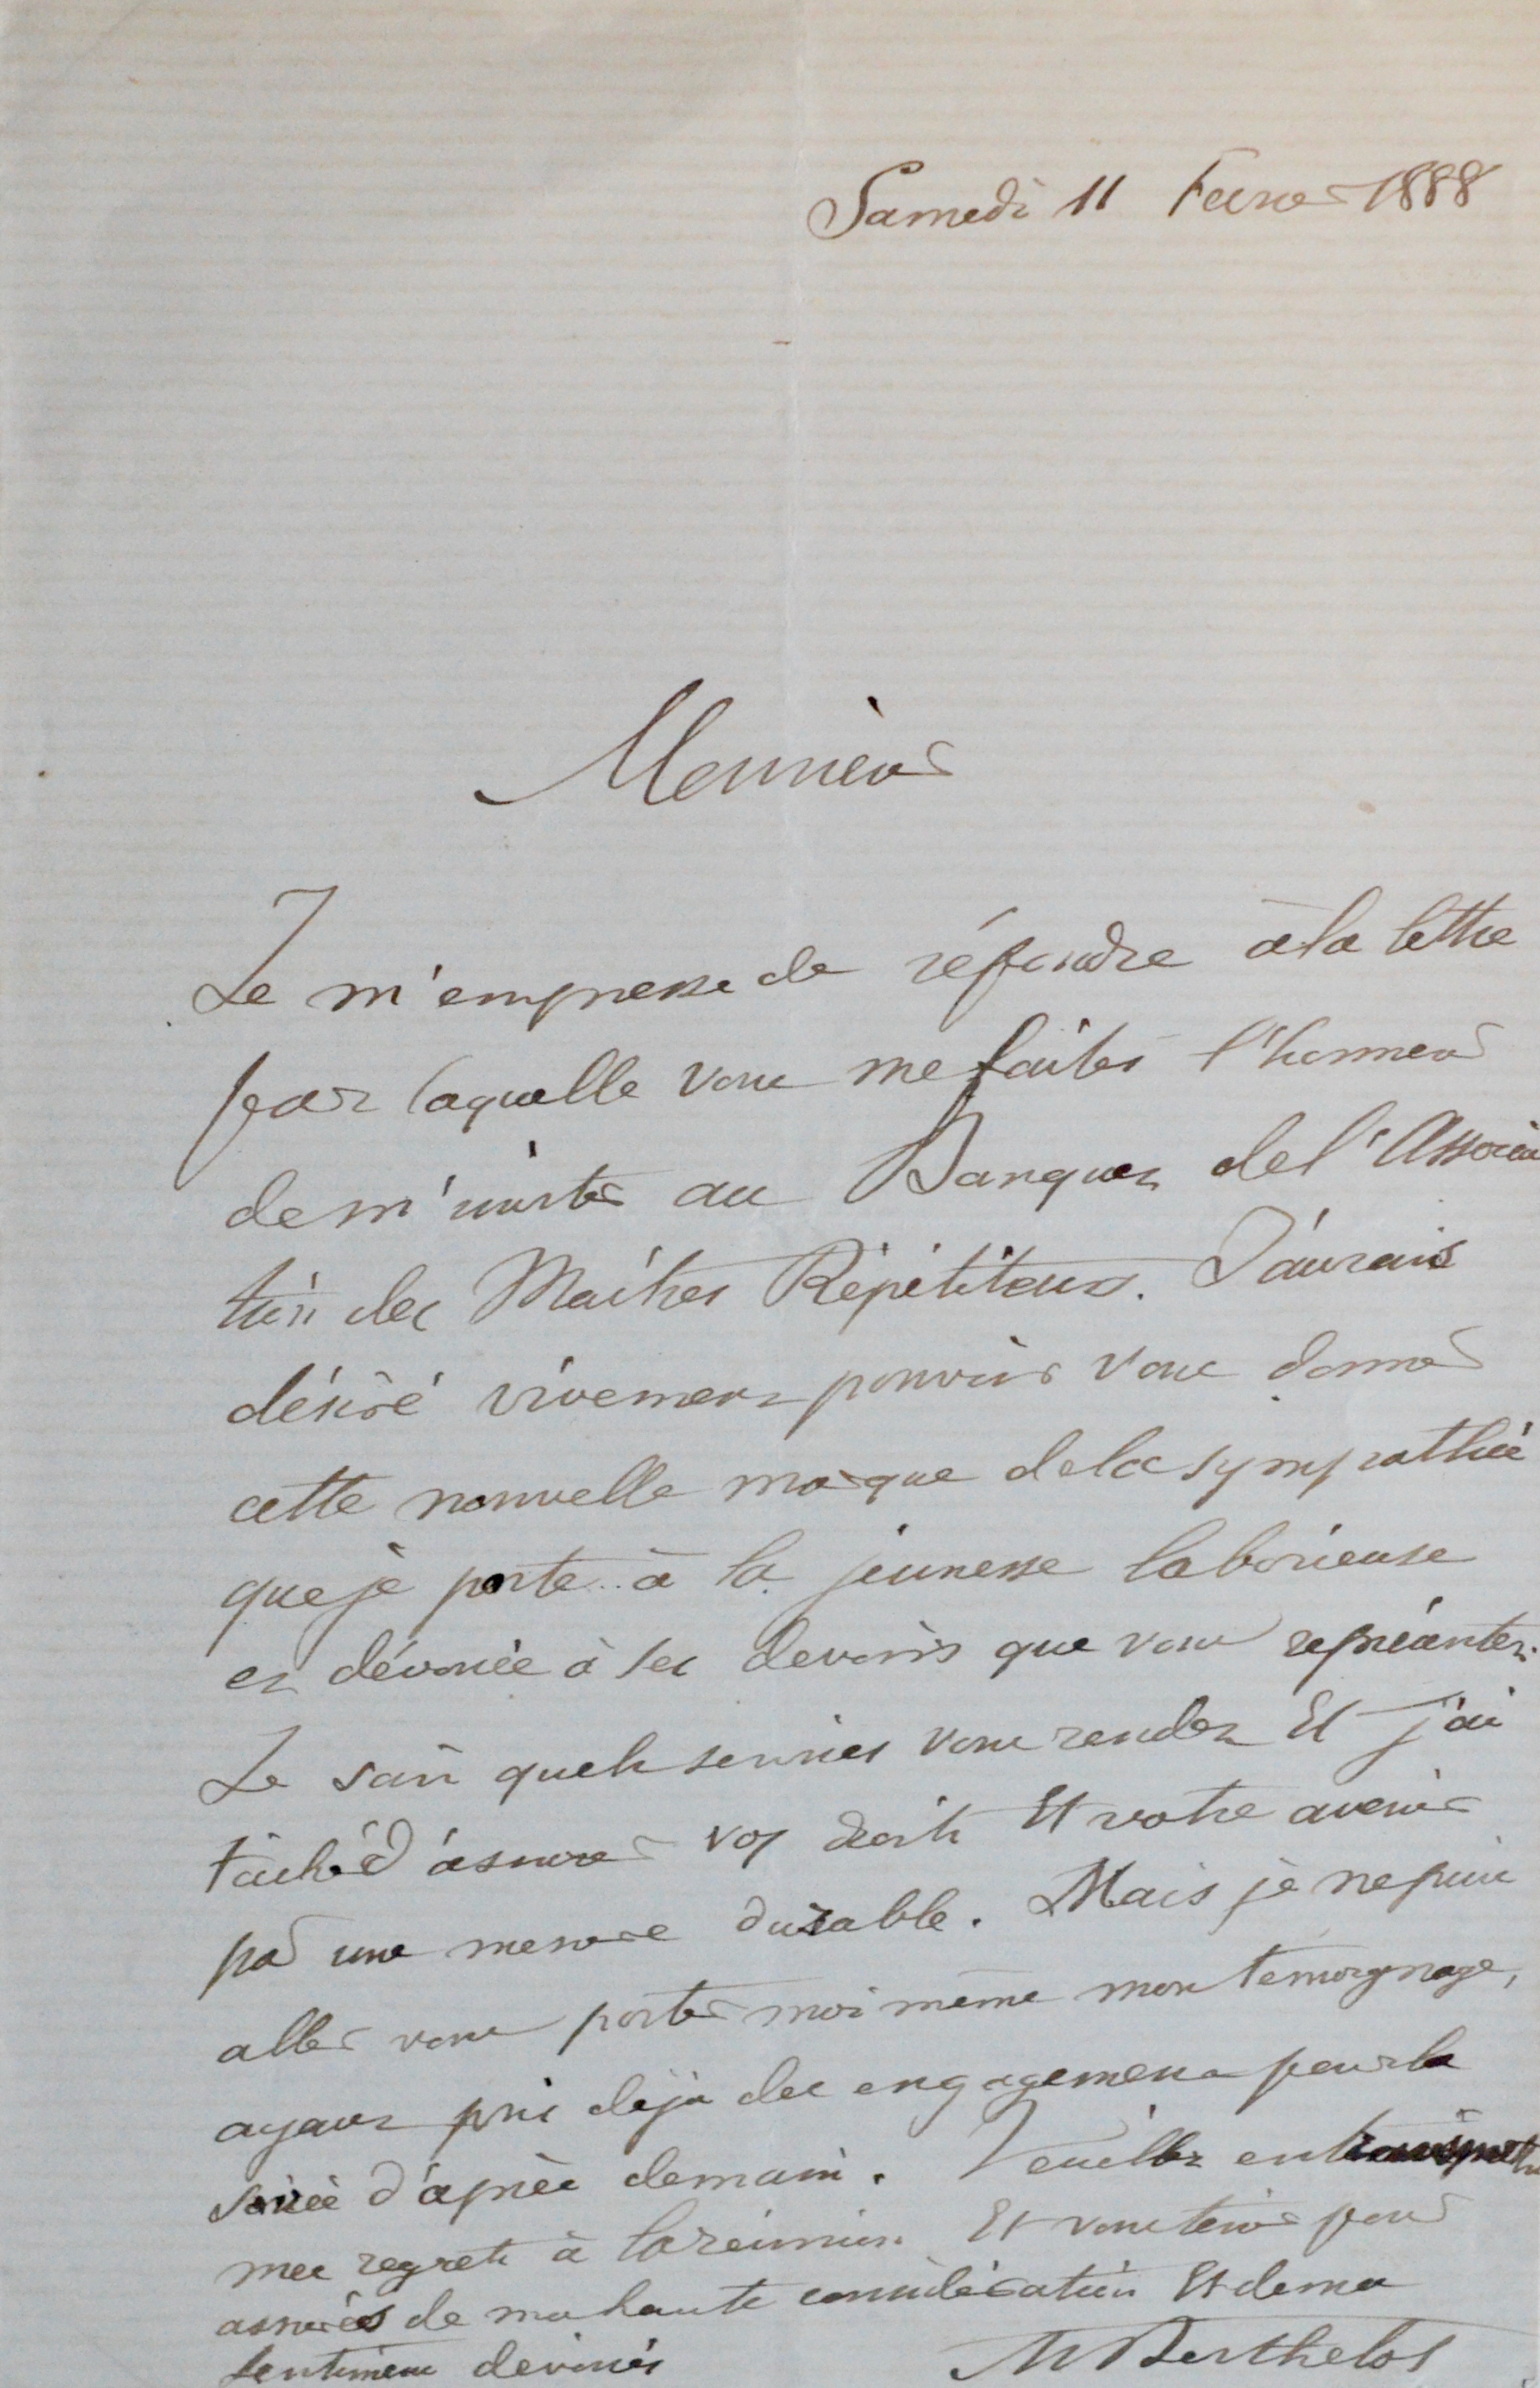 Samedi 11 Fevrier 1888
Monsieur
Je m'empresse de répondre à la lettre
par laquelle vous me faites l'honneur
de m'inviter au Banquet de l'Associa
tion des Maîtres Répétiteurs. J'aurais
désiré vivement pouvoir vous donner
cette nouvelle marque de la sympathie
que je porte à la jeunesse laborieuse
et dévouée à ses devoirs que vous représentez.
Je sais quels services vous rendez Et j'ai
tâché d'assurer vos droits Et votre avenir
par une mesure durable. Mais je ne puis
aller vous porter moi même mon témoignage,
ayant pris déja des engagements pour la
soirée d'après demain. Veuillez en transmettre
mes regrets à la réunion Et vous tenir pour
assurés de ma haute considération Et de mes
sentiments dévoués
M Berthelot